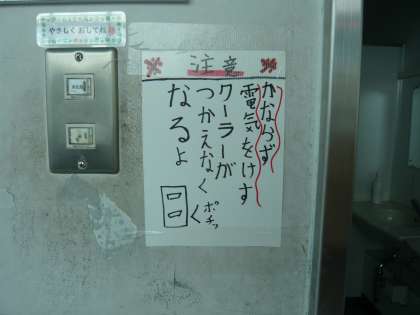 やさしく おしてね
注意
かならず
電気をけす
クーラーが
つかえなく
なるよ
ポチッ